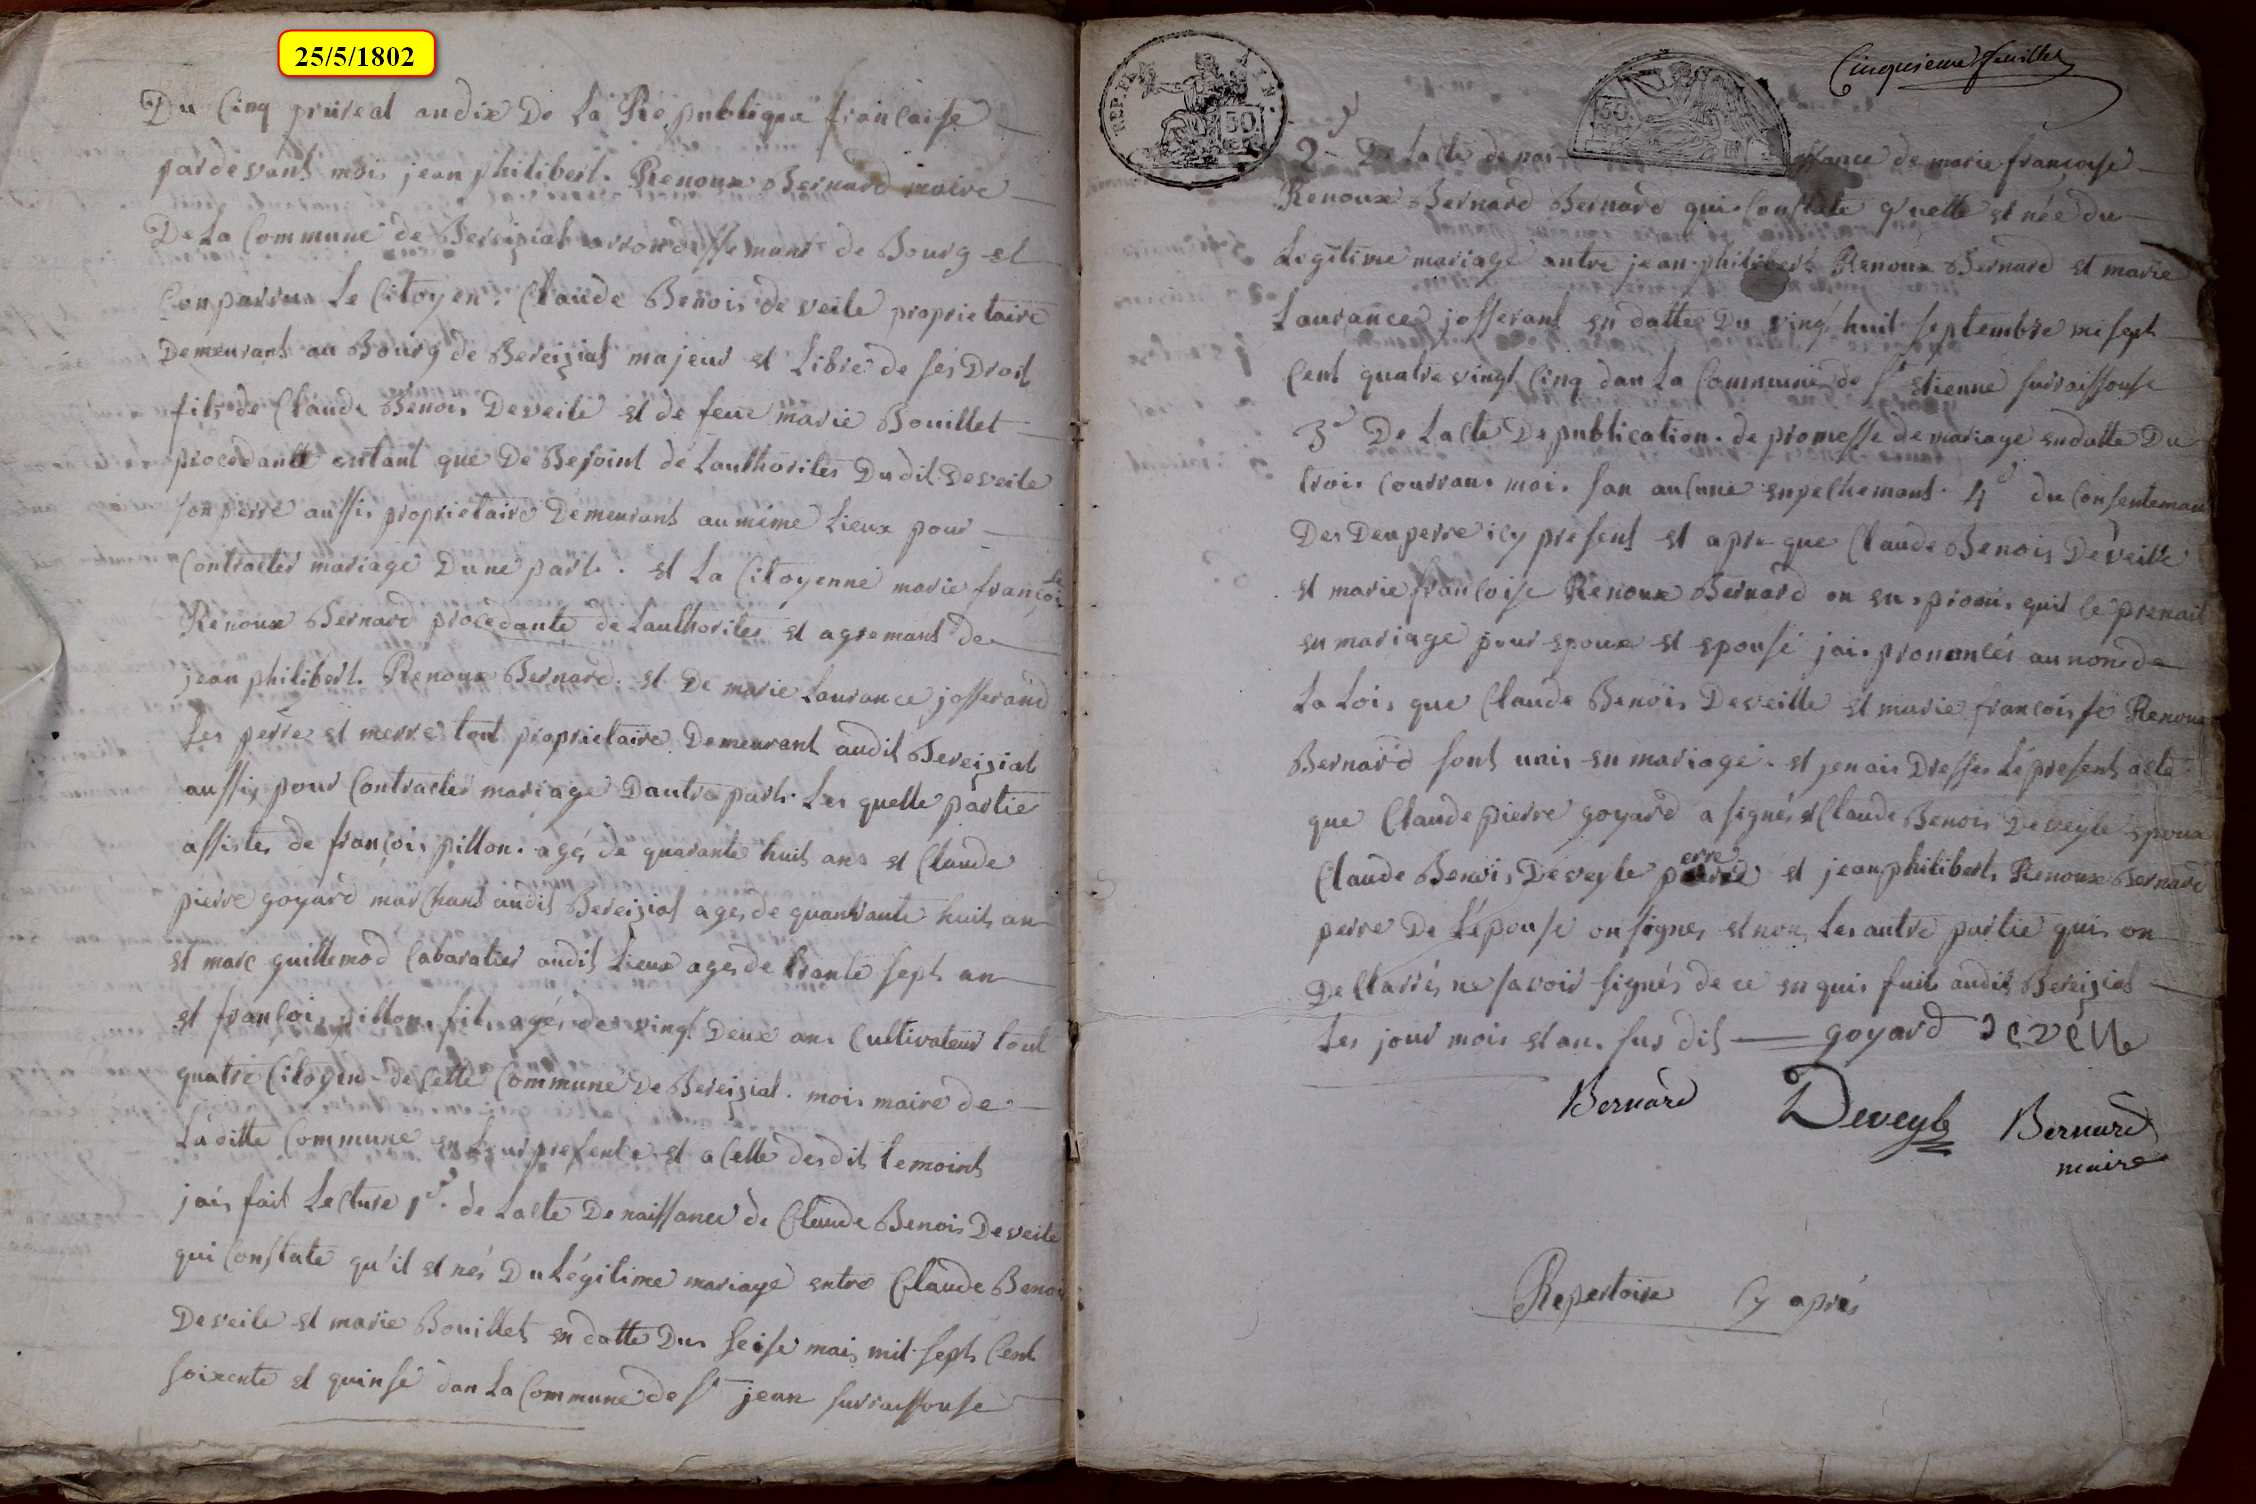 25/5/1802
Du Cinq prureal an dix De La Republique francaise
pardevant moi, jean philibert. Renoux Bernard maire
De La Commune de Bereiziat arrondissemant de Bourg et
Conparrux Le Citoyen. Claude Benois de veile proprietaire
Demeurant au Bourg de Bereiziat majeur et Libre de ses Droit
fils de Claude Benois Deveile et de feue marie Bouillet
procedante entant que De Besoint de Lauthorites Dudit Deveile
son perre aussi, proprietaire Demeurant au même Lieux pour
Contracter mariage Dune part. et La Citoyenne marie françoise
Renoux Bernard procedante de Lauthorites et agremant de
jean philibert. Renoux Bernard. et De marie Laurance josserand
Ses perre et merre tout proprietaire Demeurant audit Bereiziat
aussi, pour Contracter mariage Dautre part. Les quelle partie
assistes de françois pillon. agé, de quarante huit ans et Claude
pierre goyard marChant audit Bereiziat ages de quantrante huit an
et marc guillemod Cabaratier audit Lieux ages de trante sept an
et françois pillon, fils agés de vingt Deux an. Cultivateur tout
quatre Citoyen de Cette Commune De Bereiziat. moi, maire de
Laditte Commune en Leur presente et a Celle desdit temoints
jais fait Lecture 1.° de Lacte De naissance de Claude Benois Deveile
qui Constate qu'il et nés Du Légitime mariage entre Claude Benois
Deveile et marie Bouillet en datte Du, seise mais mil sept Cent
soixente et quinse dan La Commune de St jean surraissouse
REP. FRA.
50
50.
Cinquieme feuillet
2.° De Lacte de nai- ssance de marie françoise
Renoux Bernard Bernard qui Constate q'uelle et née du
Légitime mariage antre jean philibert Renoux Bernard et marie
Laurance josserant en datte Du vingt huit septembre mi sept
Cent quatre vingt Cinq dan La Commune de St etienne surraissouse
3° De Lacte De publication. de promesse de mariage en datte Du
trois Courran. mois. san auCune enpechemant. 4° du Consentemant
Des Deu perre icy present et apre que Claude Benois Deveille
et marie francoise Renoux Bernard on eu, promi, quil ce prenait
en mariage pour epoux et epouse jai. prononcés au nom de
La Loi, que Claude Benois Deveille et marie françoise Renoux
Bernard sont unis en mariage. et jen ais Dresses Le present acte
que Claude pierre goyard a signés et Claude Benois Deveyle epoux
Claude Benois, Deveyle perre et jean philibert, Renoux Bernard
perre De L'épouse on signes et non, Les autre partie qui, on
DeClarrés ne savoir signés de ce en quis fait, audit Bereiziat
Les jour mois et an. sus dit goyard deveille
Bernard Deveyle Bernard
maire
Repertoire Cy aprés